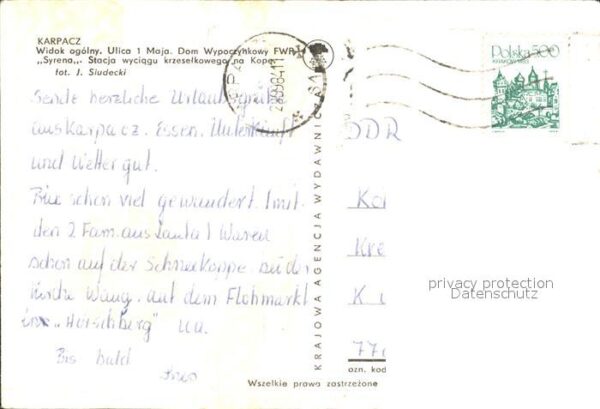 KARPACZ
Widok ogólny. Ulica 1 Maja. Dom Wypoczynkowy FWP
„Syrena„. Stacja wyciągu krzesełkowego na Kopę
fot. J. Siudecki
Polska 500
Sende herzliche Urlaubsgrüße
aus Karpacz. Essen, Unterkunft
und Wetter gut.
Bin schon viel gewandert. mit
den 2 Fam. aus Lauta
schon auf der Schneekoppe bei der
Kirche Wang, auf dem Flohmarkt
"Hirschberg" u.a.
Bis bald
DDR
77
KRAJOWA AGENCJA WYDAWNICZA
privacy protection
Datenschutz
ozn. kod
Wszelkie prawa zastrzeżone